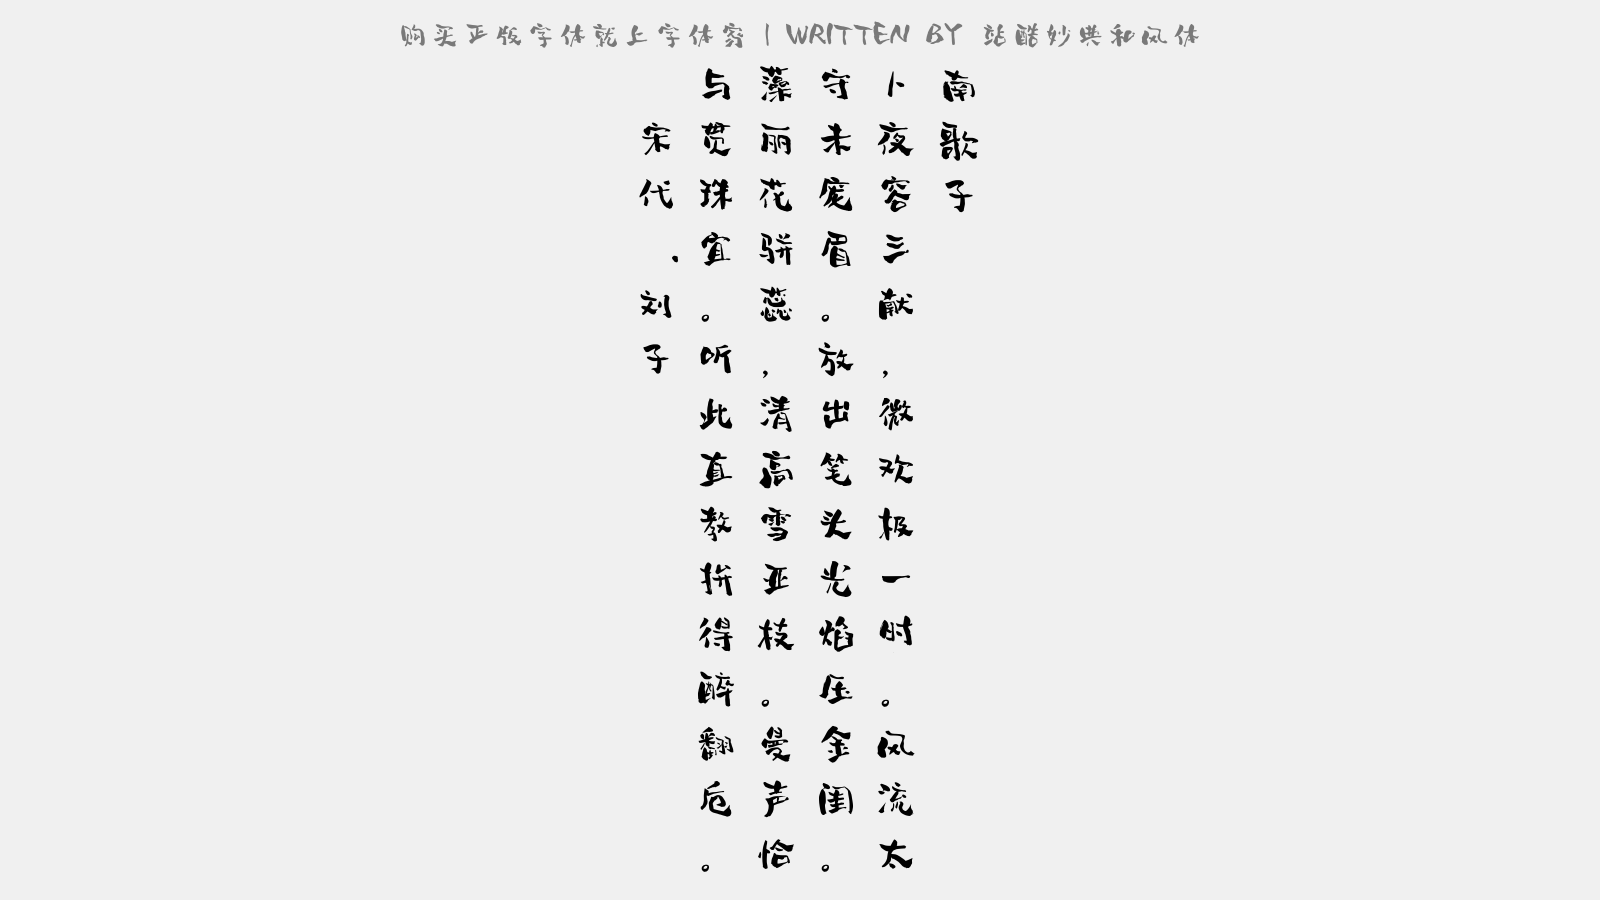 购买正版字体就上字体家 | WRITTEN BY 站酷妙典和风体
南歌子
卜夜容三献，微欢极一时。风流太
守未庞眉。放出笔头光焰压金闺。
藻丽花骈蕊，清高雪亚枝。曼声恰
与贯珠宜。听此直教拚得醉翻卮。
宋代、刘子